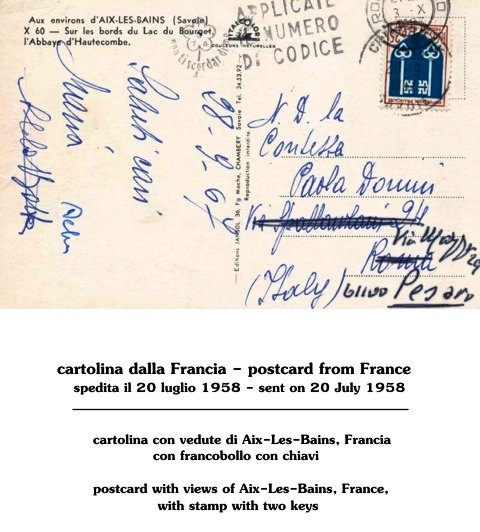 Aux environs d'AIX-LES-BAINS (Savoie)
X 60 — Sur les bords du Lac du Bourget,
l'Abbaye d'Hautecombe.
COULEURS NATURELLES
APPLICATE
NUMERO
DI CODICE
3 - X
Saluti cari
28-9-67
Maria
— Editions JANSOL 36, Fg Maché, CHAMBERY Savoie Tél. 34.33.92
Reproduction interdite.
N. D. la
Contessa
Paola Donini
Via Spallanzani 24
Roma
(Italy) 61100 Pesaro
cartolina dalla Francia - postcard from France
spedita il 20 luglio 1958 - sent on 20 July 1958
cartolina con vedute di Aix-Les-Bains, Francia
con francobollo con chiavi
postcard with views of Aix-Les-Bains, France,
with stamp with two keys